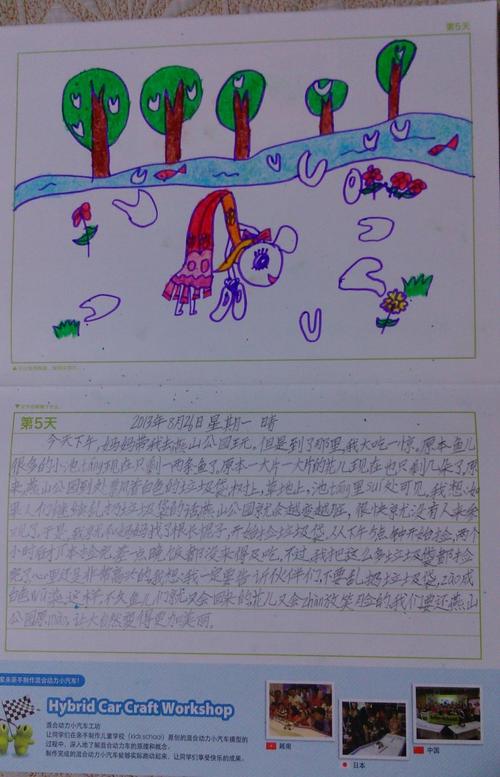 第5天
第5天
2013年8月26日 星期一 晴
今天下午,妈妈带我去燕山公园玩。但是到了那里,我大吃一惊。原本鱼儿
很多的小池tang现在只剩一两条鱼了,原本一大片一大片的花儿现在也只剩几朵了,原
来,燕山公园到处
白色的垃圾袋,树上,草地上,池tang里sui处可见。我想:如
果人们继续乱扔垃圾袋的话燕山公园就会越变越脏,很快就没有人来参
观了。于是,我就和妈妈找了根长棍子,开始捡垃圾袋,从下午5点钟开始捡,两个
小时后才捡完,
晚饭都没来得及吃,不过,我把这么多垃圾袋都捡
完了心里还是非常高兴的。我想:我一定要告诉伙伴们,不要乱扔垃圾袋,zao成
白色
这样,不久鱼儿们就又会回来的,花儿又会zhan放笑脸的。我们要还燕山
公园原mao,让大自然变得更加美丽。
Hybrid Car Craft Workshop
混合动力小汽车工坊
让同学们在亲手制作儿童学校(kids school)原创的混合动力小汽车模型的
过程中,深入地了解混合动力车的原理和概念。
制作完成的混合动力小汽车能够实际跑动起来,让同学们享受快乐的成果。
越南
日本
中国